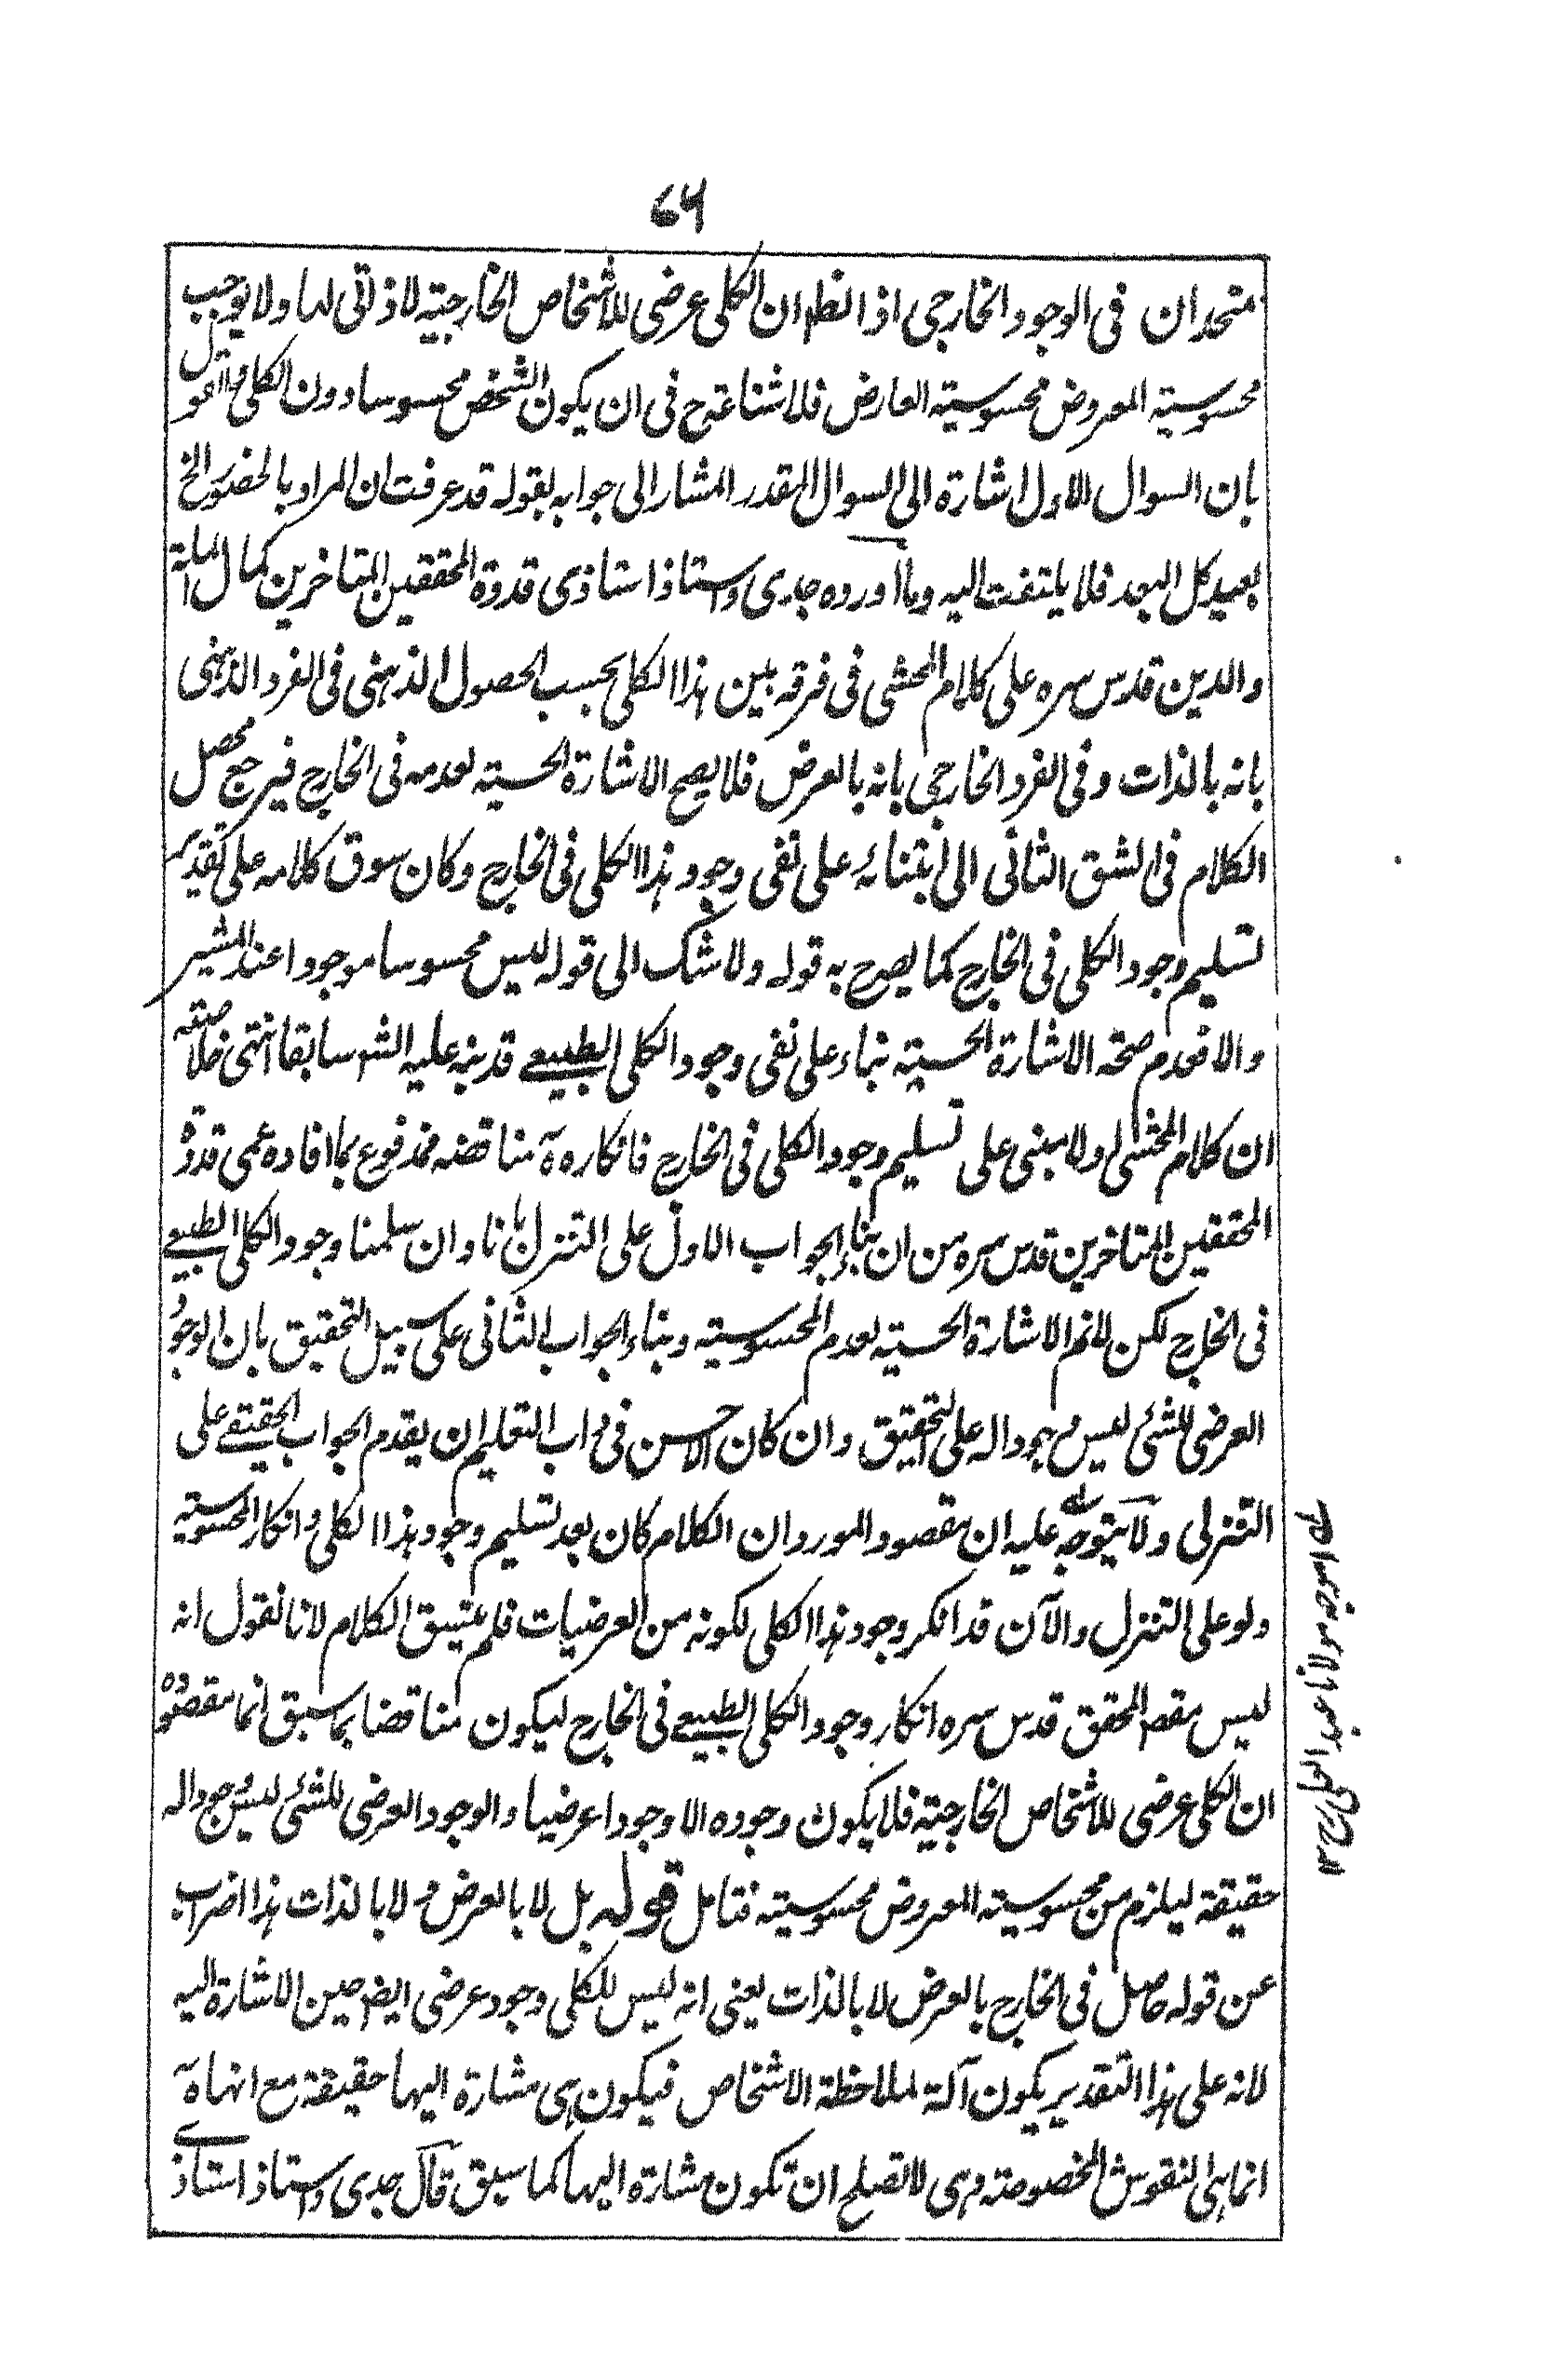 ٧٦
متحدان فى الوجود الخارجى اذ الظ ان الكلى عرضى للاشخاص الخارجية لا ذاتى لها ولا يوجب
محسوسية المعروض محسوسية العارض فلا شناعة ح فى ان يكون الشخص محسوسا دون الكلى والقول
بان السوال الاول اشارة الى السوال المقدر المشار الى جوابه بقوله قد عرفت ان المراد بالحضور الخ
بعيد كل البعد فلا يلتفت اليه وما اورده جدى واستاذ استاذى قدوة المحققين المتاخرين كمال الملة
والدين قدس سره على كلام المحشى فى فرقه بين هذا الكلى بحسب الحصول الذهنى فى الفرد الذهنى
بانه بالذات وفى الفرد الخارجى بانه بالعرض فلا يصح الاشارة الحسية لعدمه فى الخارج فيرجع محصل
الكلام فى الشق الثانى الى ابتنائه على نفى وجود هذا الكلى فى الخارج وكان سوق كلامه على تقدير
تسليم وجود الكلى فى الخارج كما يصرح به قوله ولا شك الى قوله ليس محسوسا موجودا عند المشير
والا فعدم صحة الاشارة الحسية بناء على نفى وجود الكلى الطبيعے قد نبه عليه الش سابقا انتهى خلاصته
ان كلام المحشى اولا مبنى على تسليم وجود الكلى فى الخارج فانكاره ة مناقضه فمدفوع بما افاده عمى قدوة
المحققين المتاخرين قدس سره من ان بناء الجواب الاول على التنزل بانا وان سلمنا وجود الكلى الطبيعے
فى الخارج لكن لا نم الاشارة الحسية لعدم المحسوسية وبناء الجواب الثانى على سبيل التحقيق بان الوجود
العرضى للشئ ليس موجودا له على التحقيق وان كان الاحسن فى داب التعليم ان يقدم الجواب الحقيقے على
التنزلى ولا يتوجه عليه ان مقصود المورد ان الكلام كان بعد تسليم وجود هذا الكلى وانكار المحسوسية
ولو على التنزل والآن قد انكر وجود هذا الكلى لكونه من العرضيات فلم يتسق الكلام لانا نقول انه
ليس مقص المحقق قدس سره انكار وجود الكلى الطبيعے فى الخارج ليكون مناقضا بما سبق انما مقصوده
ان الكلى عرضى للاشخاص الخارجية فلا يكون وجوده الا وجودا عرضيا والوجود العرضى للشئ ليس وجودا له
حقيقة ليلزم من محسوسية المعروض محسوسيته فتامل قوله بل لا بالعرض ولا بالذات هذا اضراب
عن قوله حاصل فى الخارج بالعرض لا بالذات يعنى انه ليس للكلى وجود عرضى ايض حين الاشارة اليه
لانه على هذا التقدير يكون آلة لملاحظة الاشخاص فيكون هى مشارة اليها حقيقة مع انها ة
انما هى النقوش المخصوصة وهى لا تصلح ان تكون مشارة اليها كما سبق قال جدى واستاذ استاذى
مولانا عبد الحلى رح ١٢